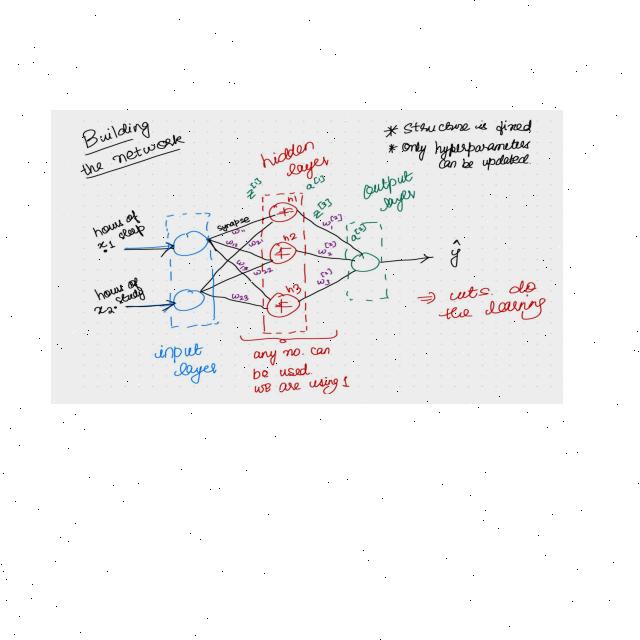 Building
the network
* Structure is fixed
* Only hyperparameters
can be updated.
hidden
layer
z[1]
a[1]
z[2]
output
layer
a[2]
hours of
sleep
x1
synapse
w11
w12
w21
w22
w23
h1
h2
h3
w[2]
w2[2]
w3[2]
ŷ
hours of
study
x2
⇒ wts. do
the learning
input
layer
any no. can
be used.
we are using 1